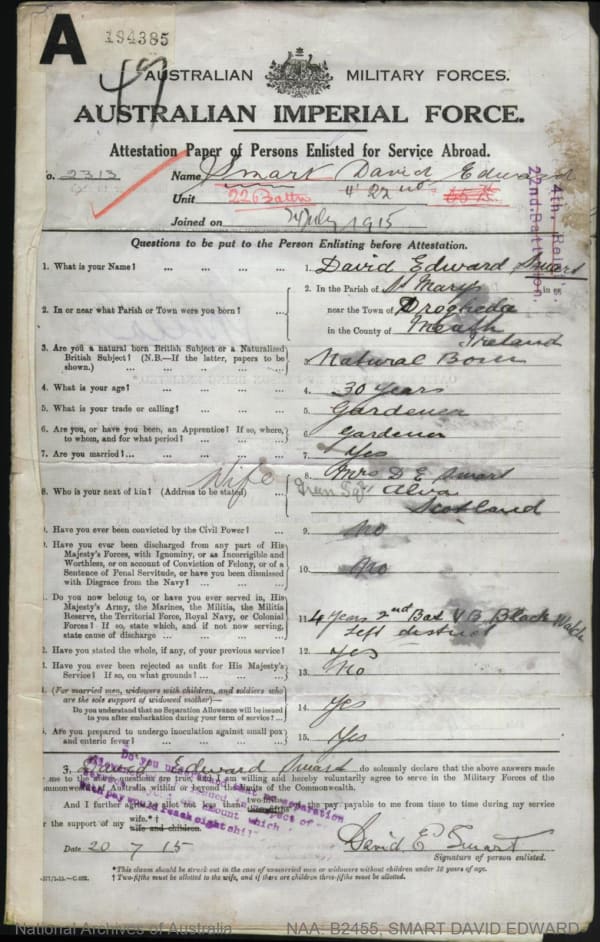 A
194385
49
AUSTRALIAN MILITARY FORCES.
AUSTRALIAN IMPERIAL FORCE.
Attestation Paper of Persons Enlisted for Service Abroad.
o. 2313 Name Smart David Edward
Unit 22 Battn 4" 22nd
Joined on July 1915
4th. Reinf.
22nd. Battalion.
Questions to be put to the Person Enlisting before Attestation.
1. What is your Name? ... ... ... ... 1. David Edward Smart
2. In or near what Parish or Town were you born? ... 2. In the Parish of St Marys in or
near the Town of Drogheda
in the County of Meath
Ireland
3. Are you a natural born British Subject or a Naturalized
British Subject? (N.B.—If the latter, papers to be
shown.) ... ... ... ... 3. Natural Born
4. What is your age? ... ... ... ... 4. 30 years
5. What is your trade or calling? ... ... ... 5. Gardener
6. Are you, or have you been, an Apprentice? If so, where,
to whom, and for what period? ... ... ... 6. Gardener
7. Are you married? ... ... ... ... 7. Yes
Wife
8. Who is your next of kin? (Address to be stated) ... 8. Mrs D E Smart
Alva
Scotland
. Have you ever been convicted by the Civil Power? ... 9. No
. Have you ever been discharged from any part of His
Majesty's Forces, with Ignominy, or as Incorrigible and
Worthless, or on account of Conviction of Felony, or of a
Sentence of Penal Servitude, or have you been dismissed
with Disgrace from the Navy? ... ... 10. No
. Do you now belong to, or have you ever served in, His
Majesty's Army, the Marines, the Militia, the Militia
Reserve, the Territorial Force, Royal Navy, or Colonial
Forces? If so, state which, and if not now serving,
state cause of discharge ... ... ... 11. 4 years 2nd Bat V B Black Watch
Left district
. Have you stated the whole, if any, of your previous service? 12. Yes
. Have you ever been rejected as unfit for His Majesty's
Service? If so, on what grounds? ... ... 13. No
. (For married men, widowers with children, and soldiers who
are the sole support of widowed mother)—
Do you understand that no Separation Allowance will be issued
to you after embarkation during your term of service? ... 14. Yes
. Are you prepared to undergo inoculation against small pox
and enteric fever? 15. Yes
Do you understand that no separation
with pay would reach eight shil
I, David Edward Smart do solemnly declare that the above answers made
me to the above questions are true, and I am willing and hereby voluntarily agree to serve in the Military Forces of the
mmonwealth of Australia within or beyond the limits of the Commonwealth.
And I further agree to allot not less than two-fifths of the pay payable to me from time to time during my service
r the support of my wife.*†
wife and children.
Date 20 7 15 David E Smart
Signature of person enlisted.
*This clause should be struck out in the case of unmarried men or widowers without children under 18 years of age.
† Two-fifths must be allotted to the wife, and if there are children three-fifths must be allotted.
National Archives of Australia NAA: B2455, SMART DAVID EDWARD